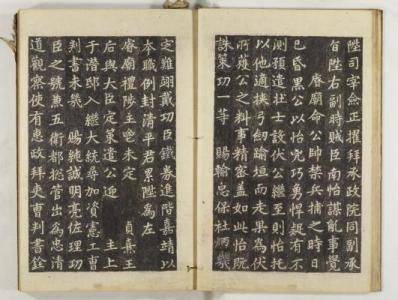 陞司宰僉正擢拜承政院同副承
旨陞右副時賊臣南怡謀亂事覺
睿廟命公帥禁兵捕之時日
已昏黑公以怡兇巧勇悍疑有不
測預遣壯士設伏公繼至則怡托
以他適挾弓劒踰垣而走果爲伏
所獲公之料事精密蓋如此怡旣
誅策功一等 賜輸忠保社炳幾
定難翊戴功臣鐵券進階嘉靖以
本職例封清平君累陞爲左
睿廟禮陟主鬯未定 貞熹王
后與大臣定策遣公迎 主上
于潛邸入繼大統尋加資憲工曹
判書未幾 賜純誠明亮佐理功
臣之號兼五衛都摠管出爲忠清
道觀察使有惠政拜吏曹判書銓